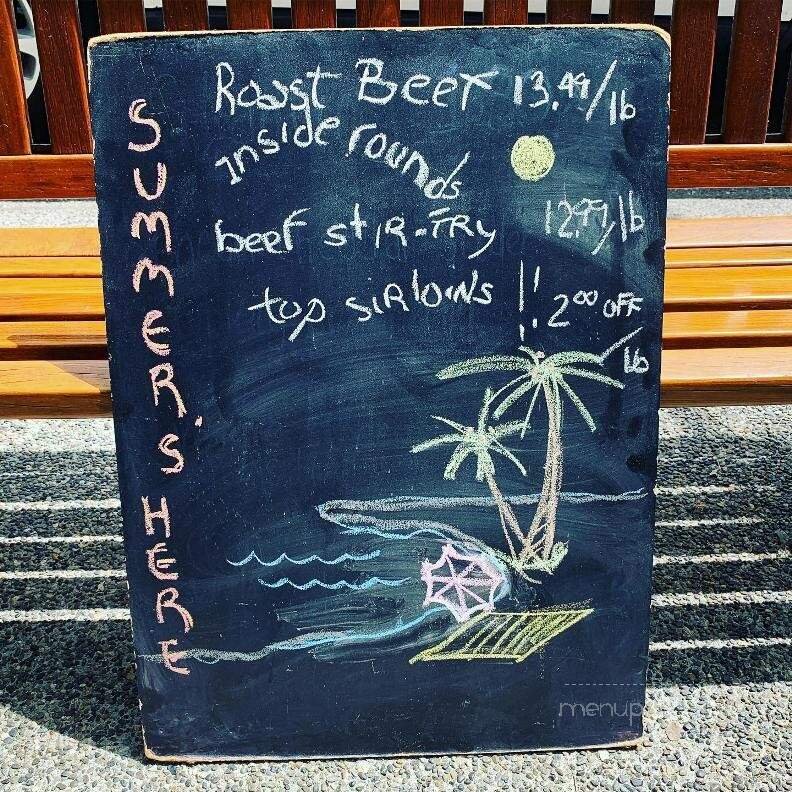 SUMMER'S HERE
Roast Beef 13.99/lb
inside rounds
beef stIR-FRY 12.99/lb
top SIRloiNs !! 2⁰⁰ OFF/lb
menup